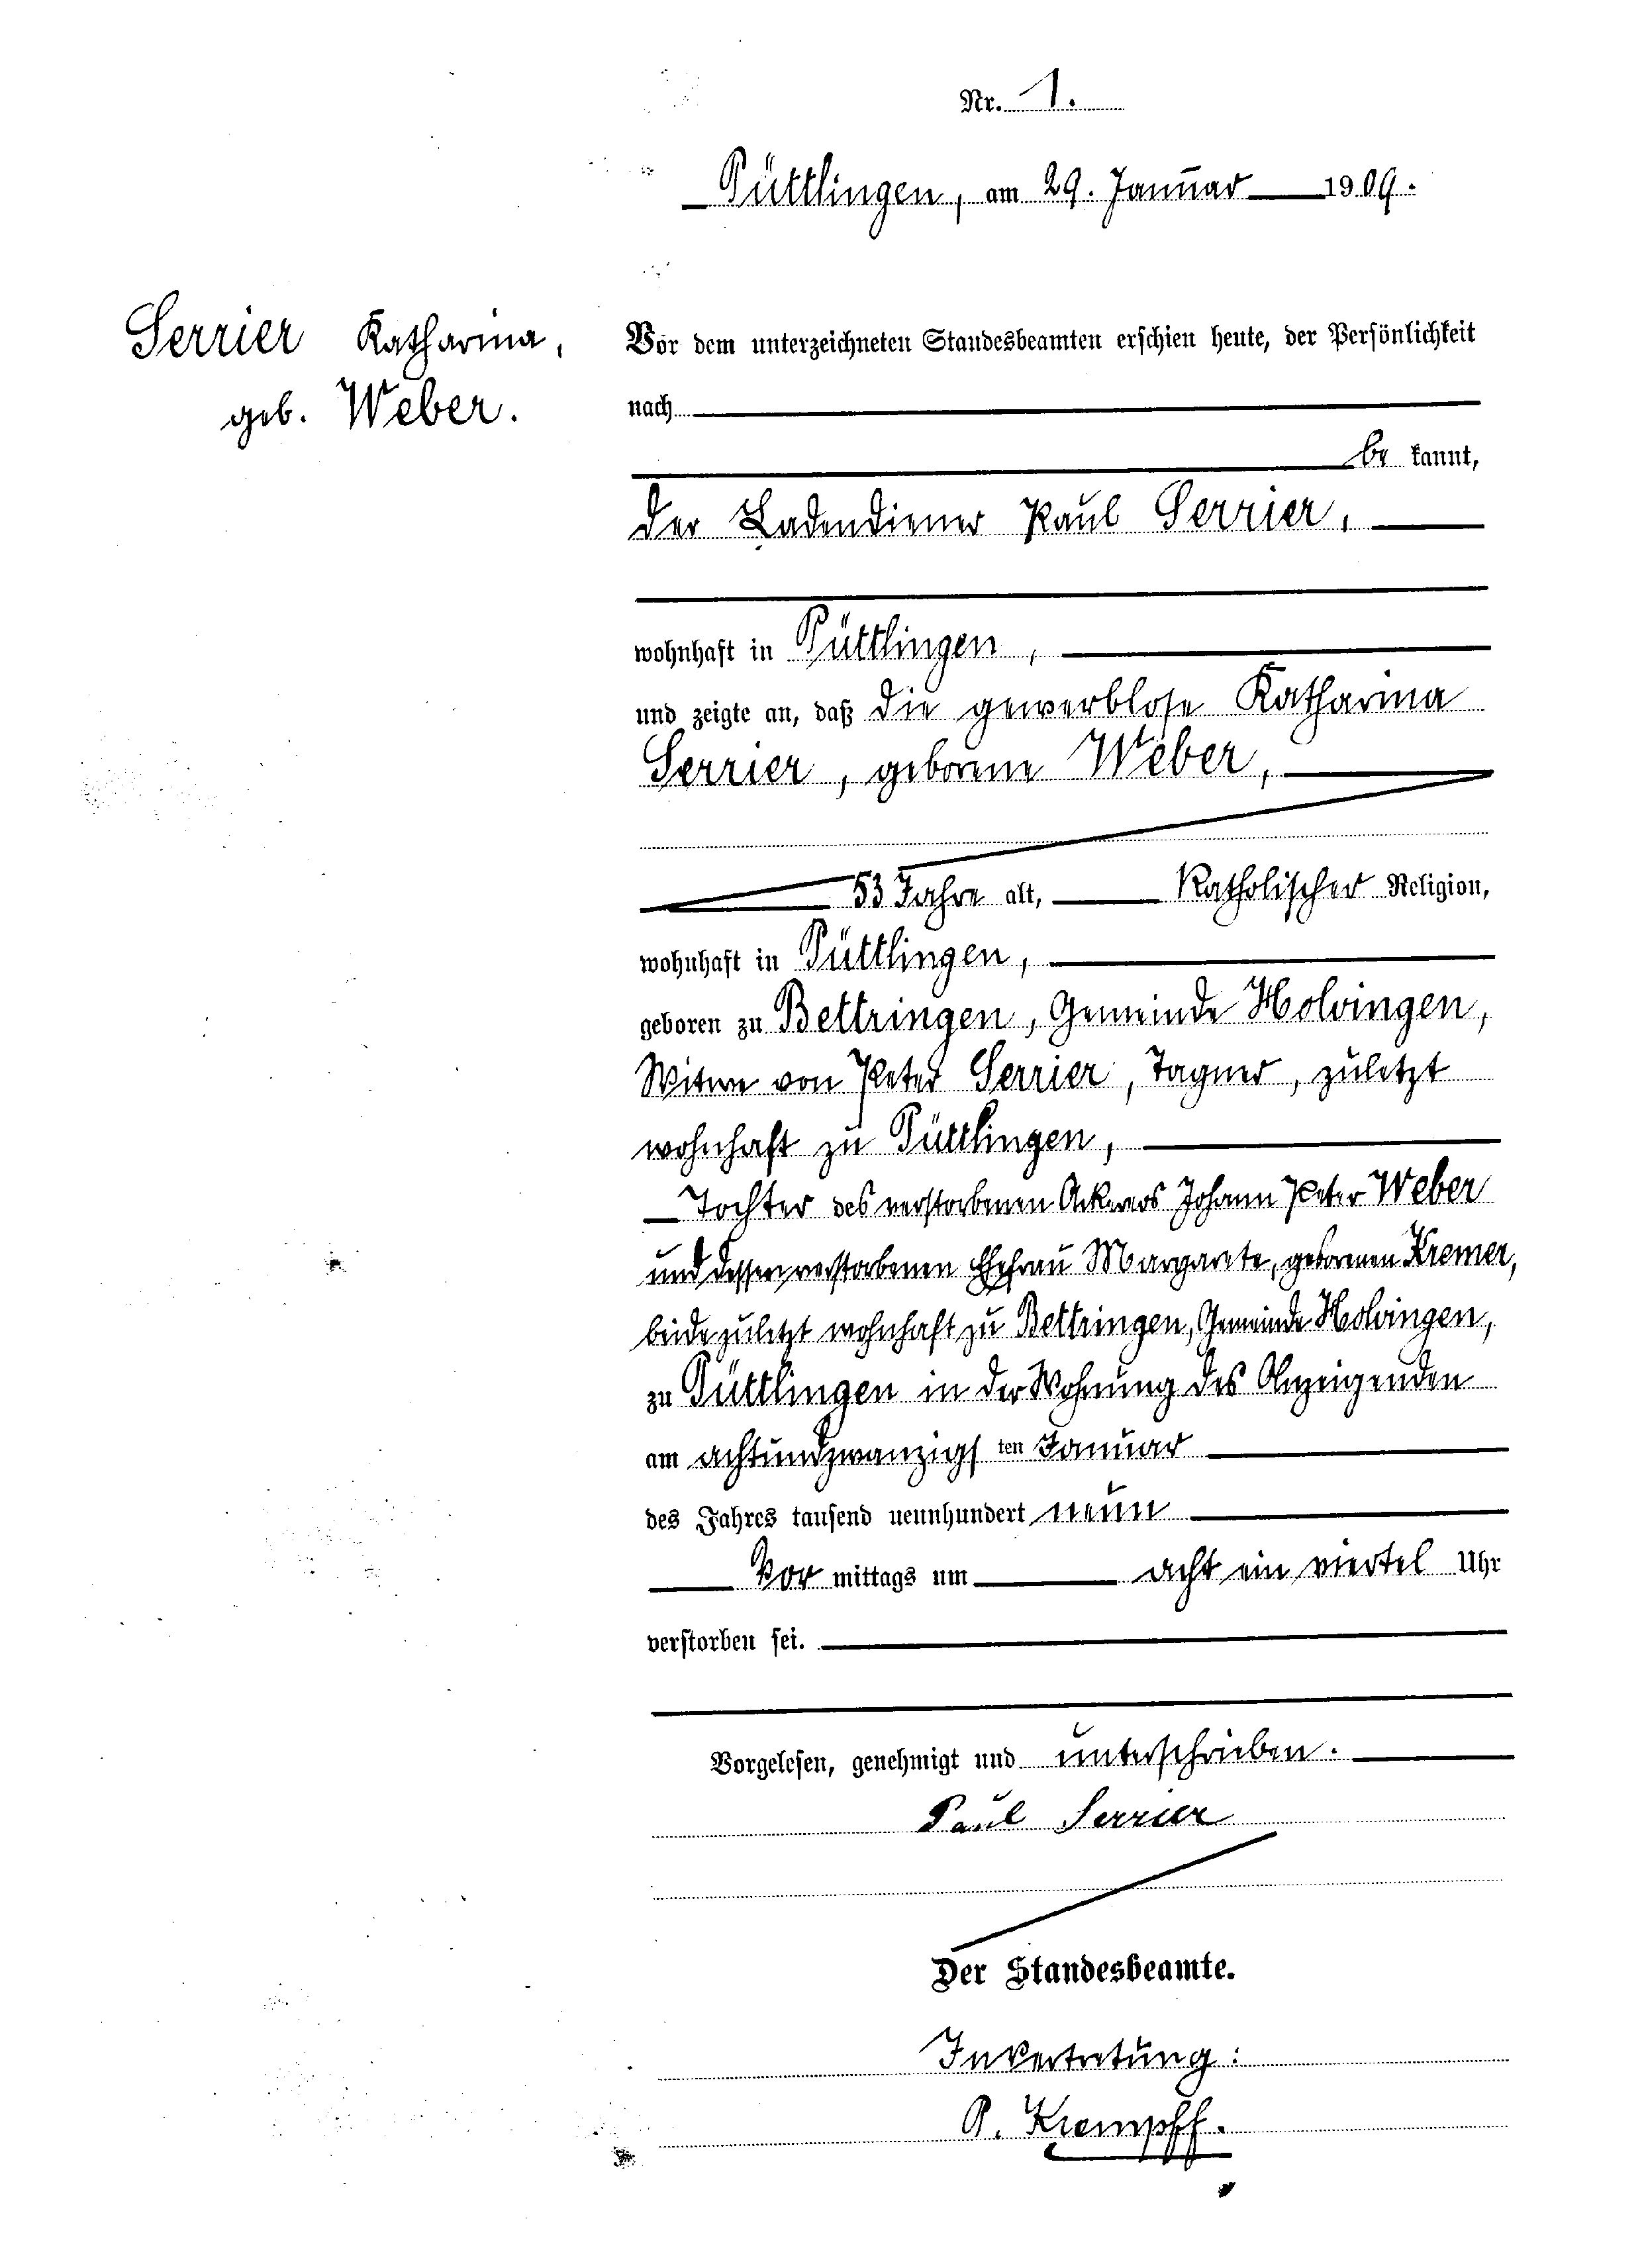 Nr. 1.
Püttlingen, am 29. Januar 1909.
Serrier Katharina,
geb. Weber.
Vor dem unterzeichneten Standesbeamten erschien heute, der Persönlichkeit
nach
be kannt,
der Ladendiener Paul Serrier,
wohnhaft in Püttlingen,
und zeigte an, daß die gewerblose Katharina
Serrier, geborene Weber,
53 Jahre alt, Katholischer Religion,
wohnhaft in Püttlingen,
geboren zu Bettringen, Gemeinde Holvingen,
Witwe von Peter Serrier, Tagner, zuletzt
wohnhaft zu Püttlingen,
Tochter des verstorbenen Ackerers Johann Peter Weber
und dessen verstorbenen Ehefrau Margarete, geborenen Kremer,
beide zuletzt wohnhaft zu Bettringen, Gemeinde Holvingen,
zu Püttlingen in der Wohnung des Anzeigenden
am achtundzwanzigs ten Januar
des Jahres tausend neunhundert neun
Vor mittags um acht ein viertel Uhr
verstorben sei.
Vorgelesen, genehmigt und unterschrieben.
Paul Serrier
Der Standesbeamte.
In Vertretung:
P. Krempff.